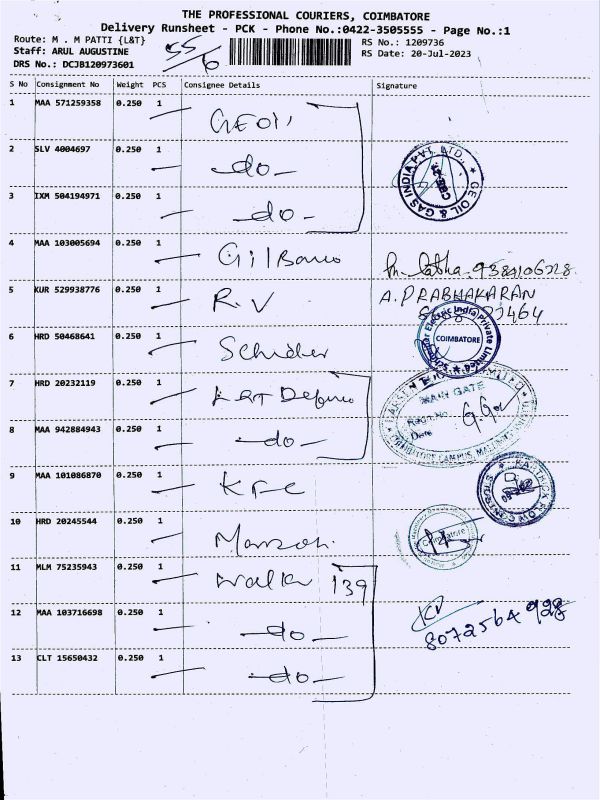 THE PROFESSIONAL COURIERS, COIMBATORE
Delivery Runsheet - PCK - Phone No.:0422-3505555 - Page No.:1
Route: M . M PATTI {L&T}
Staff: ARUL AUGUSTINE
DRS No.: DCJB120973601
55/6
RS No.: 1209736
RS Date: 20-Jul-2023
S No Consignment No Weight PCS Consignee Details Signature
1 MAA 571259358 0.250 1
2 SLV 4004697 0.250 1 -do-
GE OIL & GAS INDIA PVT. LTD.
3 IXM 504194971 0.250 1 -do-
4 MAA 103005694 0.250 1 Gilbarco
9384106728
5 KUR 529938776 0.250 1 R.V A.PRABHAKARAN
6 HRD 50468641 0.250 1
Electric India Private Limited
COIMBATORE
7 HRD 20232119 0.250 1 L&T Defence
MAIN GATE
Date
8 MAA 942884943 0.250 1 -do-
9 MAA 101086870 0.250 1 KFC
KARTHICK FLOW CONTROLS
10 HRD 20245544 0.250 1
Coimbatore
11 MLM 75235943 0.250 1 139
12 MAA 103716698 0.250 1 -do-
8072564928
13 CLT 15650432 0.250 1 -do-